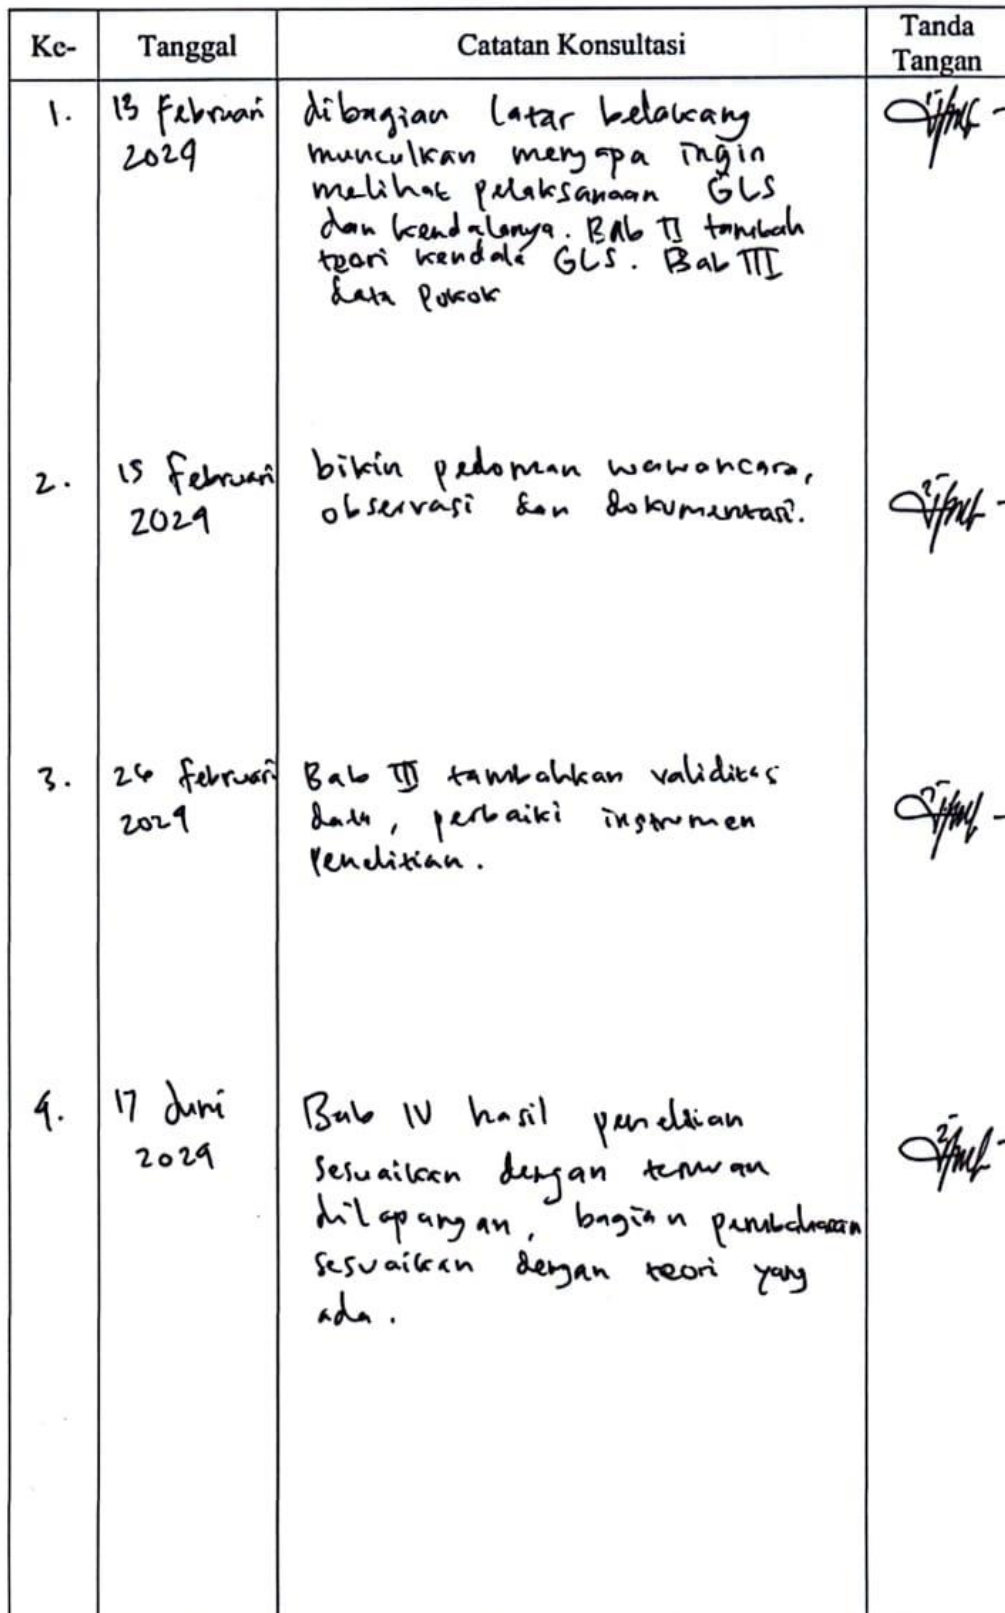 Ke- Tanggal Catatan Konsultasi Tanda Tangan
1. 13 Februari dibagian latar belakang
2024 munculkan mengapa ingin
melihat pelaksanaan GLS
dan kendalanya. BAb II tambah
teori kendala GLS. Bab III
data pokok
2. 15 Februari bikin pedoman wawancara,
2024 observasi dan dokumentasi.
3. 26 februari Bab III tambahkan validitas
2024 data, perbaiki instrumen
Penelitian.
4. 17 Juni Bab IV hasil penelitian
2024 sesuaikan dengan temuan
dilapangan, bagian pembahasan
sesuaikan dengan teori yang
ada.